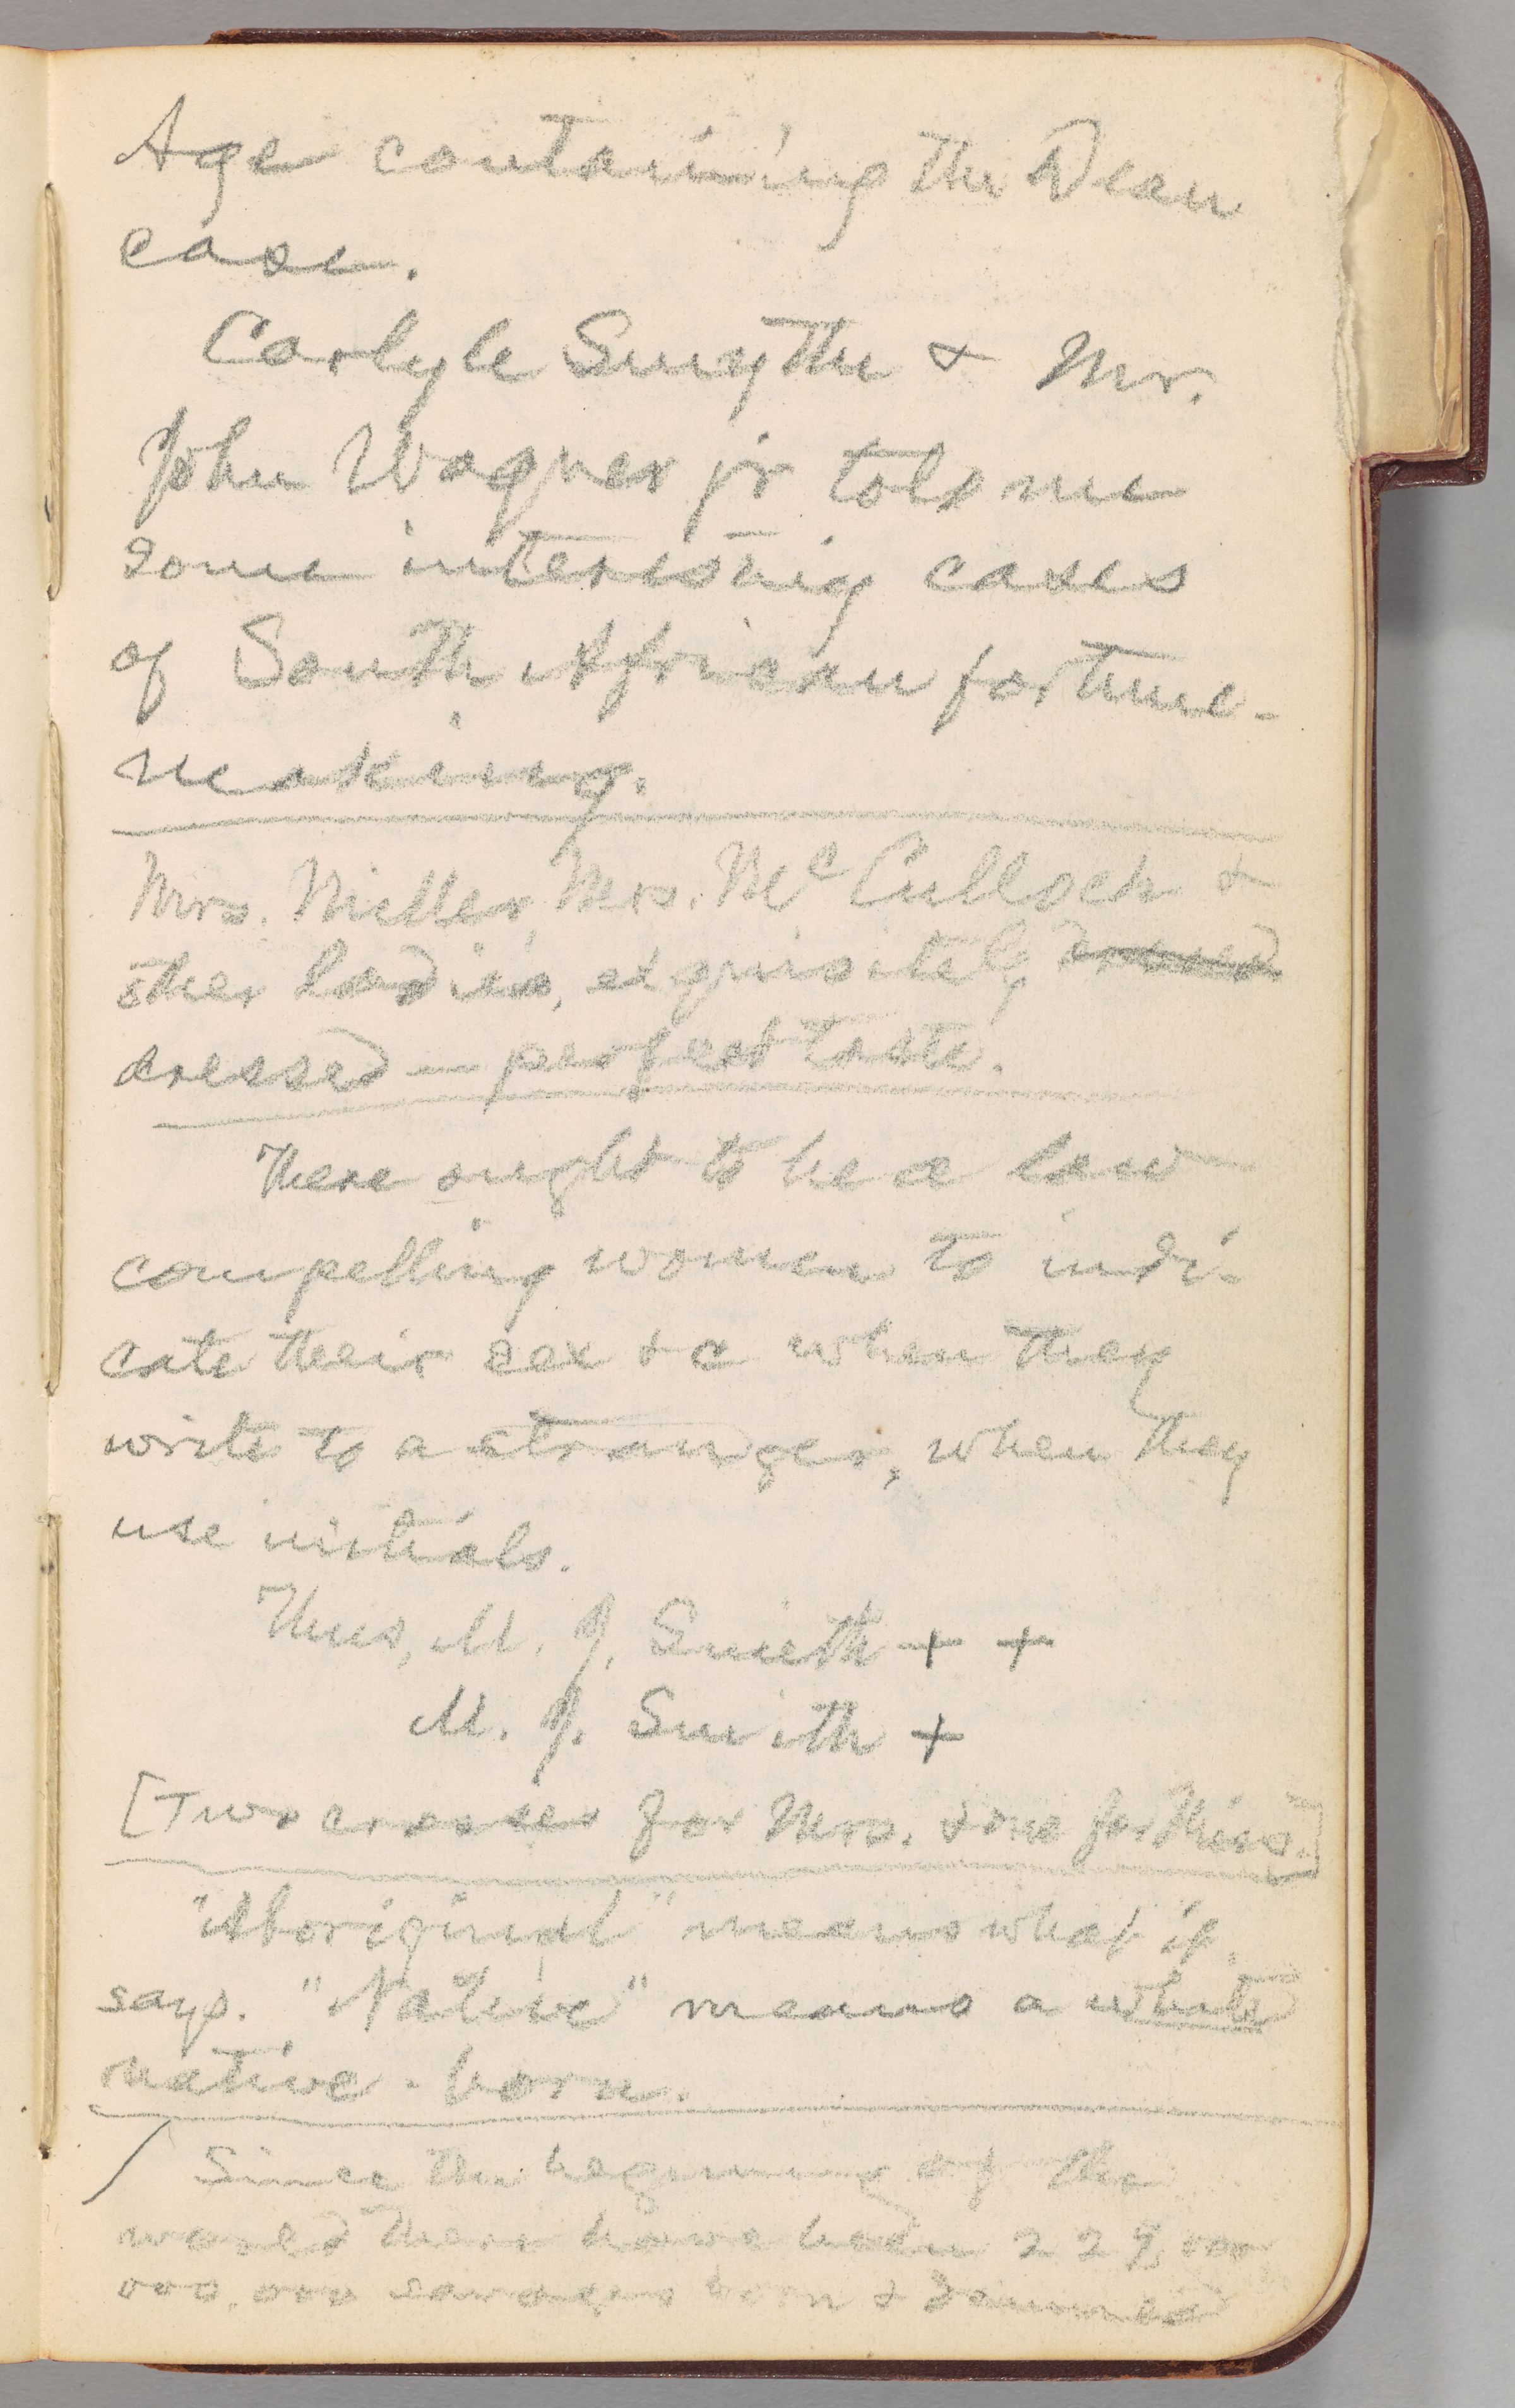 Age containing the Dean
case.
Carlyle Smythe & Mr.
John Wagner jr told me
some interesting cases
of South African fortune-
making.
Mrs. Miller, Mrs. McCulloch &
other ladies, exquisitely dressed
dressed — perfect taste.
There ought to be a law
compelling women to indi-
cate their sex &c when they
write to a stranger, when they
use initials.
Thus, M. J. Smith + +
M. J. Smith +
[Two crosses for Mrs. & one for Miss.]
"Aboriginal" means what it
says. "Native" means a white
native-born.
Since the beginning of the
world there have been 229,000
000,000 savages born & damned